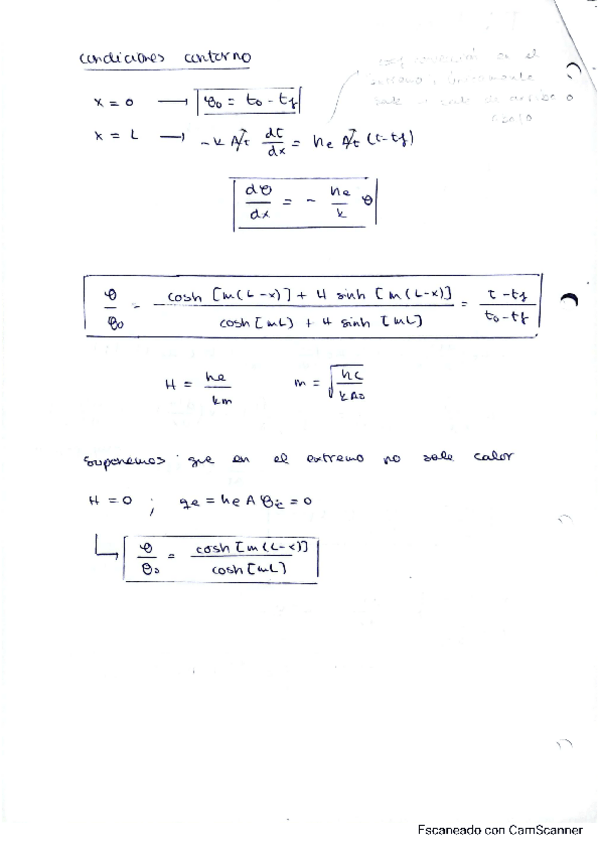 condiciones contorno
en el
x = 0 → θ₀ = t₀ - tf
x = L → -k At dt/dx = he At (t - tf)
dθ/dx = - he/k θ
θ/θ₀ = cosh [m(L-x)] + H sinh [m(L-x)] / cosh [mL] + H sinh [mL] = t - tf / t₀ - tf
H = he/km m = √hC/kA₀
suponemos que en el extremo no sale calor
H = 0 ; qe = he A θ = 0
θ/θ₀ = cosh [m(L-x)] / cosh [mL]
Escaneado con CamScanner